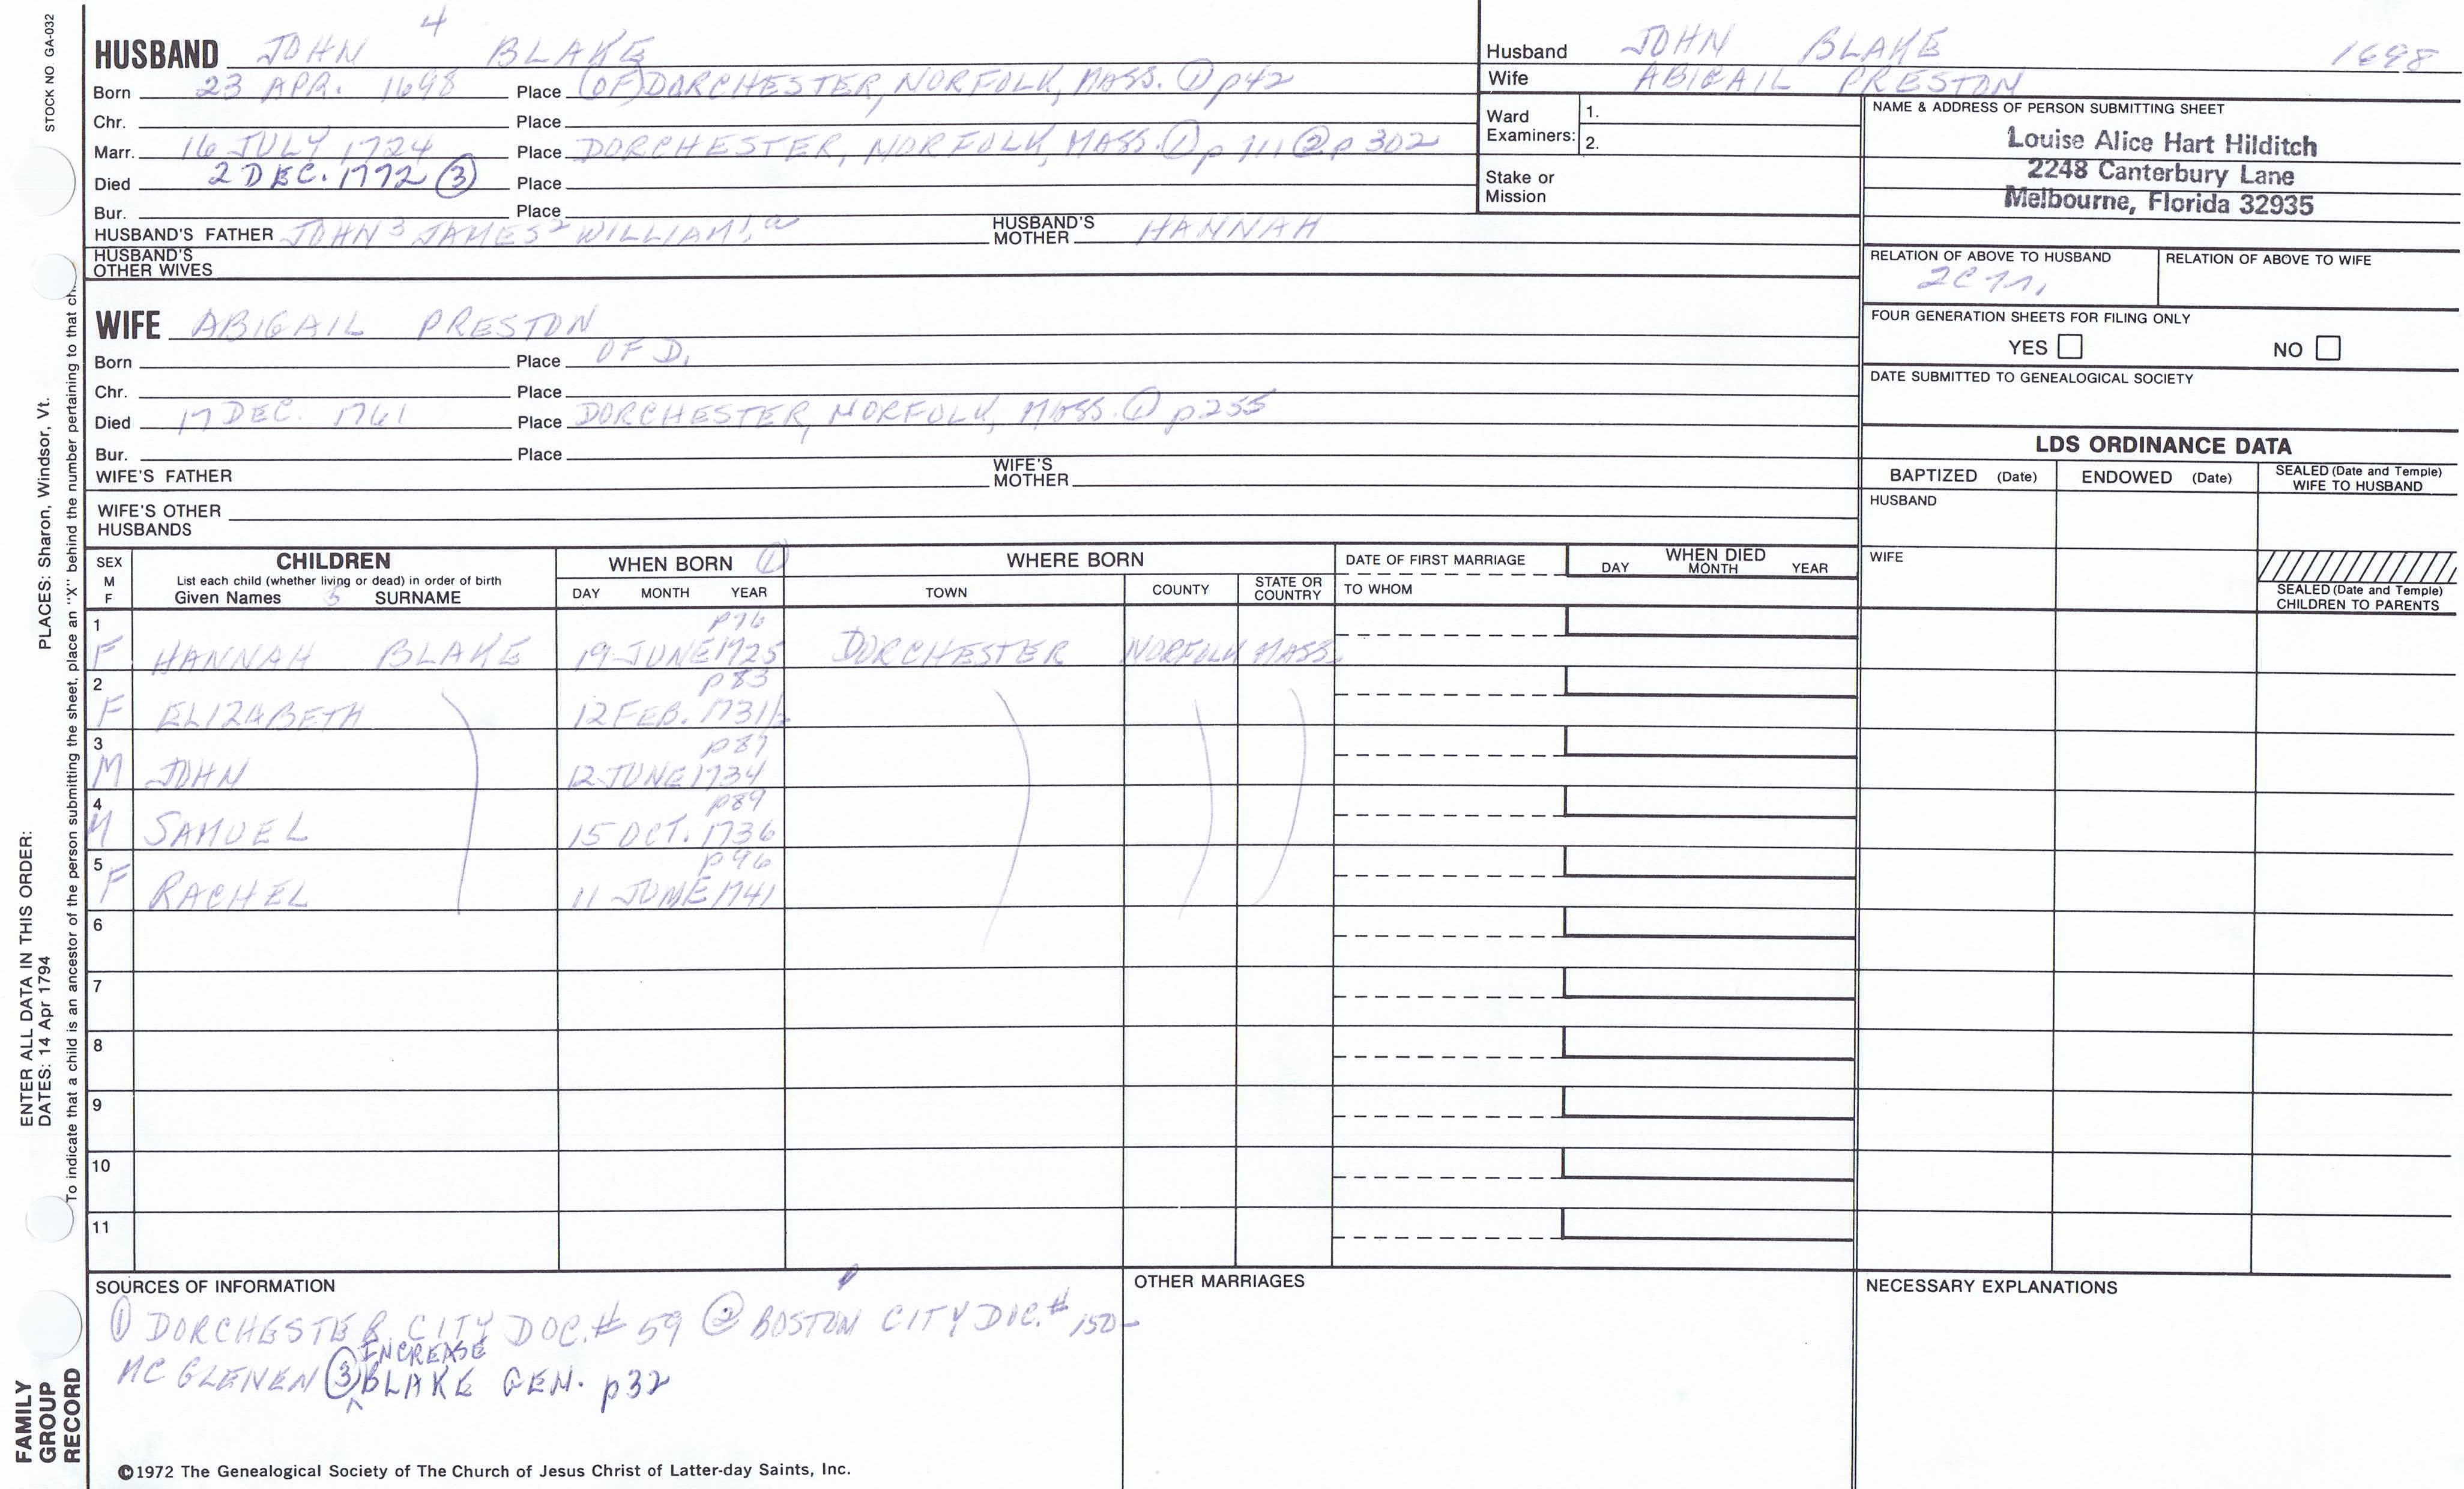 STOCK NO GA-032
PLACES: Sharon, Windsor, Vt.
To indicate that a child is an ancestor of the person submitting the sheet, place an "X" behind the number pertaining to that ch
ENTER ALL DATA IN THIS ORDER:
DATES: 14 Apr 1794
FAMILY
GROUP
RECORD
4
HUSBAND JOHN BLAKE
Born 23 APR. 1698 Place (OF) DORCHESTER, NORFOLK, MASS. ① p42
Chr. Place
Marr. 16 JULY 1724 Place DORCHESTER, NORFOLK, MASS. ① p 111 ② p 302
Died 2 DEC. 1772 ③ Place
Bur. Place
HUSBAND'S FATHER JOHN³ JAMES² WILLIAM¹ HUSBAND'S MOTHER HANNAH
HUSBAND'S
OTHER WIVES
WIFE ABIGAIL PRESTON
Born Place OF D.
Chr. Place
Died 17 DEC. 1761 Place DORCHESTER, NORFOLK, MASS. ① p255
Bur. Place
WIFE'S FATHER WIFE'S MOTHER
WIFE'S OTHER
HUSBANDS
Husband JOHN BLAKE 1698
Wife ABIGAIL PRESTON
Ward
Examiners:
1.
2.
Stake or
Mission
NAME & ADDRESS OF PERSON SUBMITTING SHEET
Louise Alice Hart Hilditch
2248 Canterbury Lane
Melbourne, Florida 32935
RELATION OF ABOVE TO HUSBAND RELATION OF ABOVE TO WIFE
FOUR GENERATION SHEETS FOR FILING ONLY
YES NO
DATE SUBMITTED TO GENEALOGICAL SOCIETY
LDS ORDINANCE DATA
BAPTIZED (Date) ENDOWED (Date) SEALED (Date and Temple)
WIFE TO HUSBAND
HUSBAND
WIFE
SEALED (Date and Temple)
CHILDREN TO PARENTS
SEX
M
F
CHILDREN
List each child (whether living or dead) in order of birth
Given Names 5 SURNAME
WHEN BORN ①
DAY MONTH YEAR
WHERE BORN
TOWN COUNTY STATE OR
COUNTRY
DATE OF FIRST MARRIAGE
TO WHOM
WHEN DIED
DAY MONTH YEAR
1 p76
F HANNAH BLAKE 19 JUNE 1725 DORCHESTER NORFOLK MASS.
2 p83
F ELIZABETH 12 FEB. 1731/2
3 p87
M JOHN 12 JUNE 1734
4 p89
M SAMUEL 15 OCT. 1736
5 p96
F RACHEL 11 JUNE 1741
6
7
8
9
10
11
SOURCES OF INFORMATION
① DORCHESTER CITY DOC. # 59 ② BOSTON CITY DOC. # 150-
INCREASE
MCGLENEN ③ BLAKE GEN. p32
OTHER MARRIAGES
NECESSARY EXPLANATIONS
©1972 The Genealogical Society of The Church of Jesus Christ of Latter-day Saints, Inc.